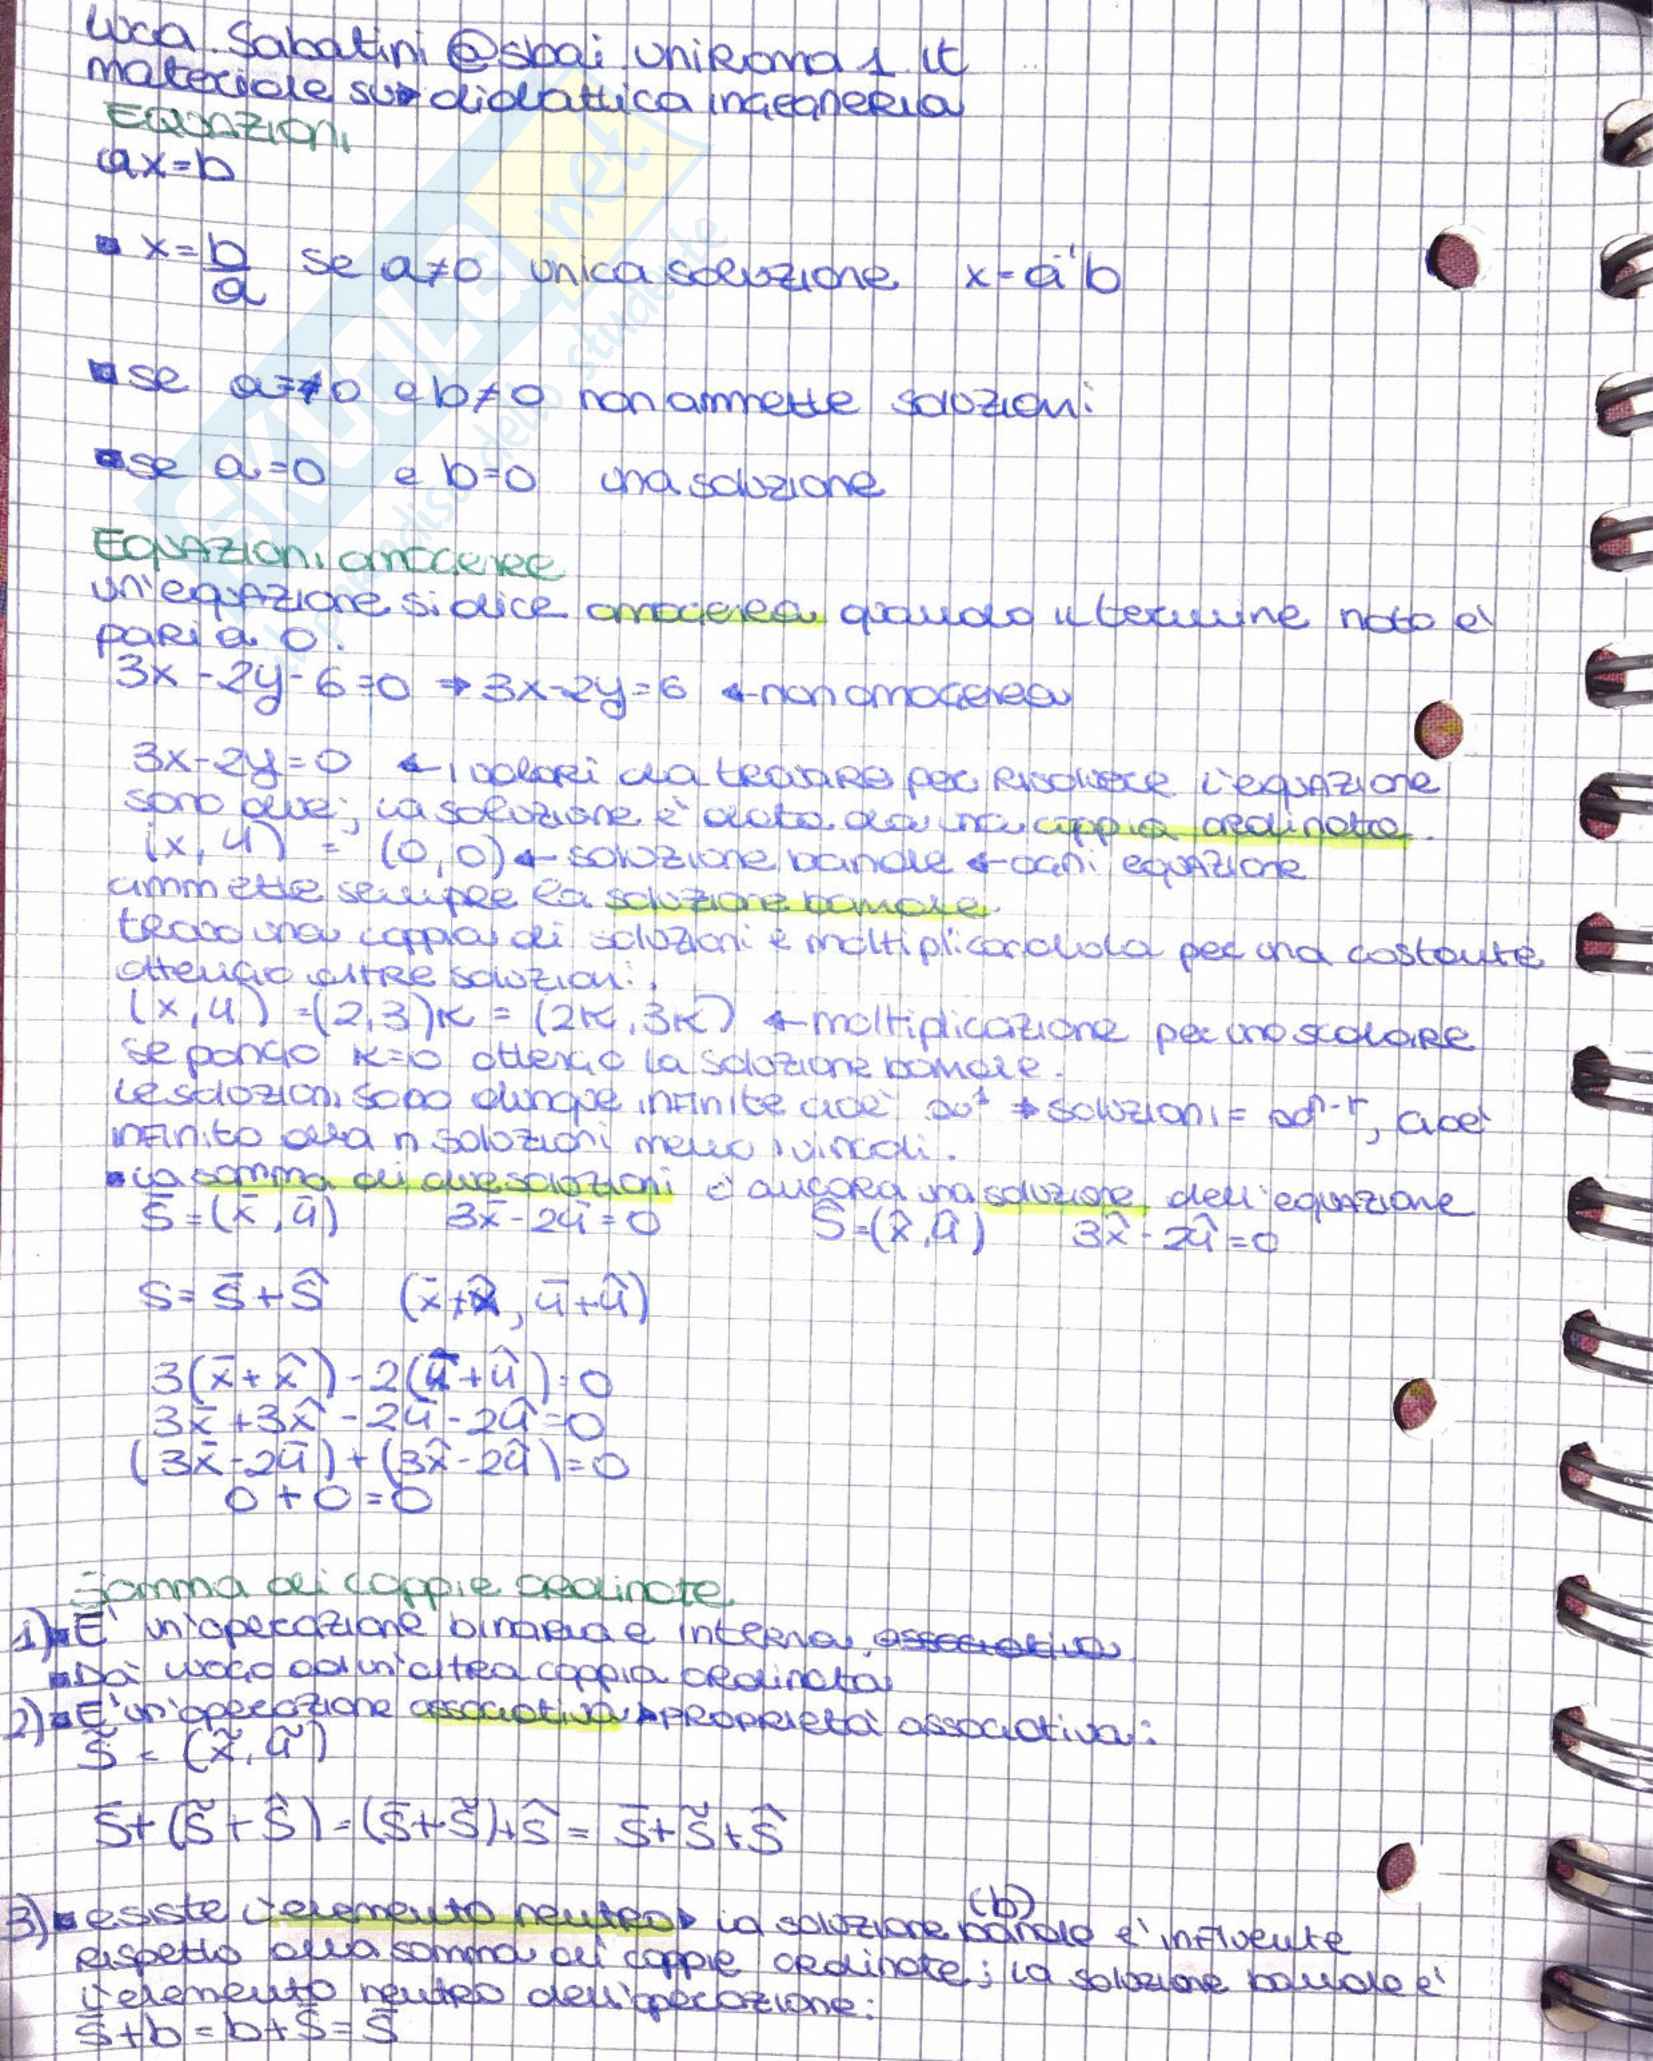 Luca.Sabatini@sbai.uniroma1.it
materiale su didattica ingegneria
EQUAZIONI
ax=b
▪ x=b/a se a≠0 unica soluzione x=a⁻¹b
▪ se a=0 e b≠0 non ammette soluzioni
▪ se a=0 e b=0 una soluzione
EQUAZIONI omogenee
un'equazione si dice omogenea quando il termine noto è
pari a 0.
3x-2y-6=0 → 3x-2y=6 ← non omogenea
3x-2y=0 ← i valori da trovare per risolvere l'equazione
sono due; la soluzione è data da una coppia ordinata.
(x,y) = (0,0) ← soluzione banale ← ogni equazione
ammette sempre la soluzione banale.
trovo una coppia di soluzioni e moltiplicandola per una costante
ottengo altre soluzioni.
(x,y) = (2,3)k = (2k,3k) ← moltiplicazione per uno scalare
se pongo k=0 ottengo la soluzione banale.
Le soluzioni sono dunque infinite cioè ∞¹ → soluzioni = ∞ⁿ⁻ʳ, cioè
infinito alla n soluzioni meno i vincoli.
▪ La somma di due soluzioni è ancora una soluzione dell'equazione
s̄=(x̄,ȳ) 3x̄-2ȳ=0 ŝ=(x̂,ŷ) 3x̂-2ŷ=0
s=s̄+ŝ (x̄+x̂, ȳ+ŷ)
3(x̄+x̂)-2(ȳ+ŷ)=0
3x̄+3x̂-2ȳ-2ŷ=0
(3x̄-2ȳ)+(3x̂-2ŷ)=0
0+0=0
Somma di coppie ordinate
1) ▪ E' un'operazione binaria e interna, associativa
▪ Dà luogo ad un'altra coppia ordinata
2) ▪ E' un'operazione associativa ▸ PROPRIETà associativa:
s̃ = (x̃,ỹ)
s̄+(s̃+ŝ)=(s̄+s̃)+ŝ= s̄+s̃+ŝ
3) ▪ esiste l'elemento neutro ▸ la soluzione banale (b) è influente
rispetto alla somma di coppie ordinate; la soluzione banale è
l'elemento neutro dell'operazione:
s̄+b=b+s̄=s̄
SKUOLA.net
il paradiso dello studente